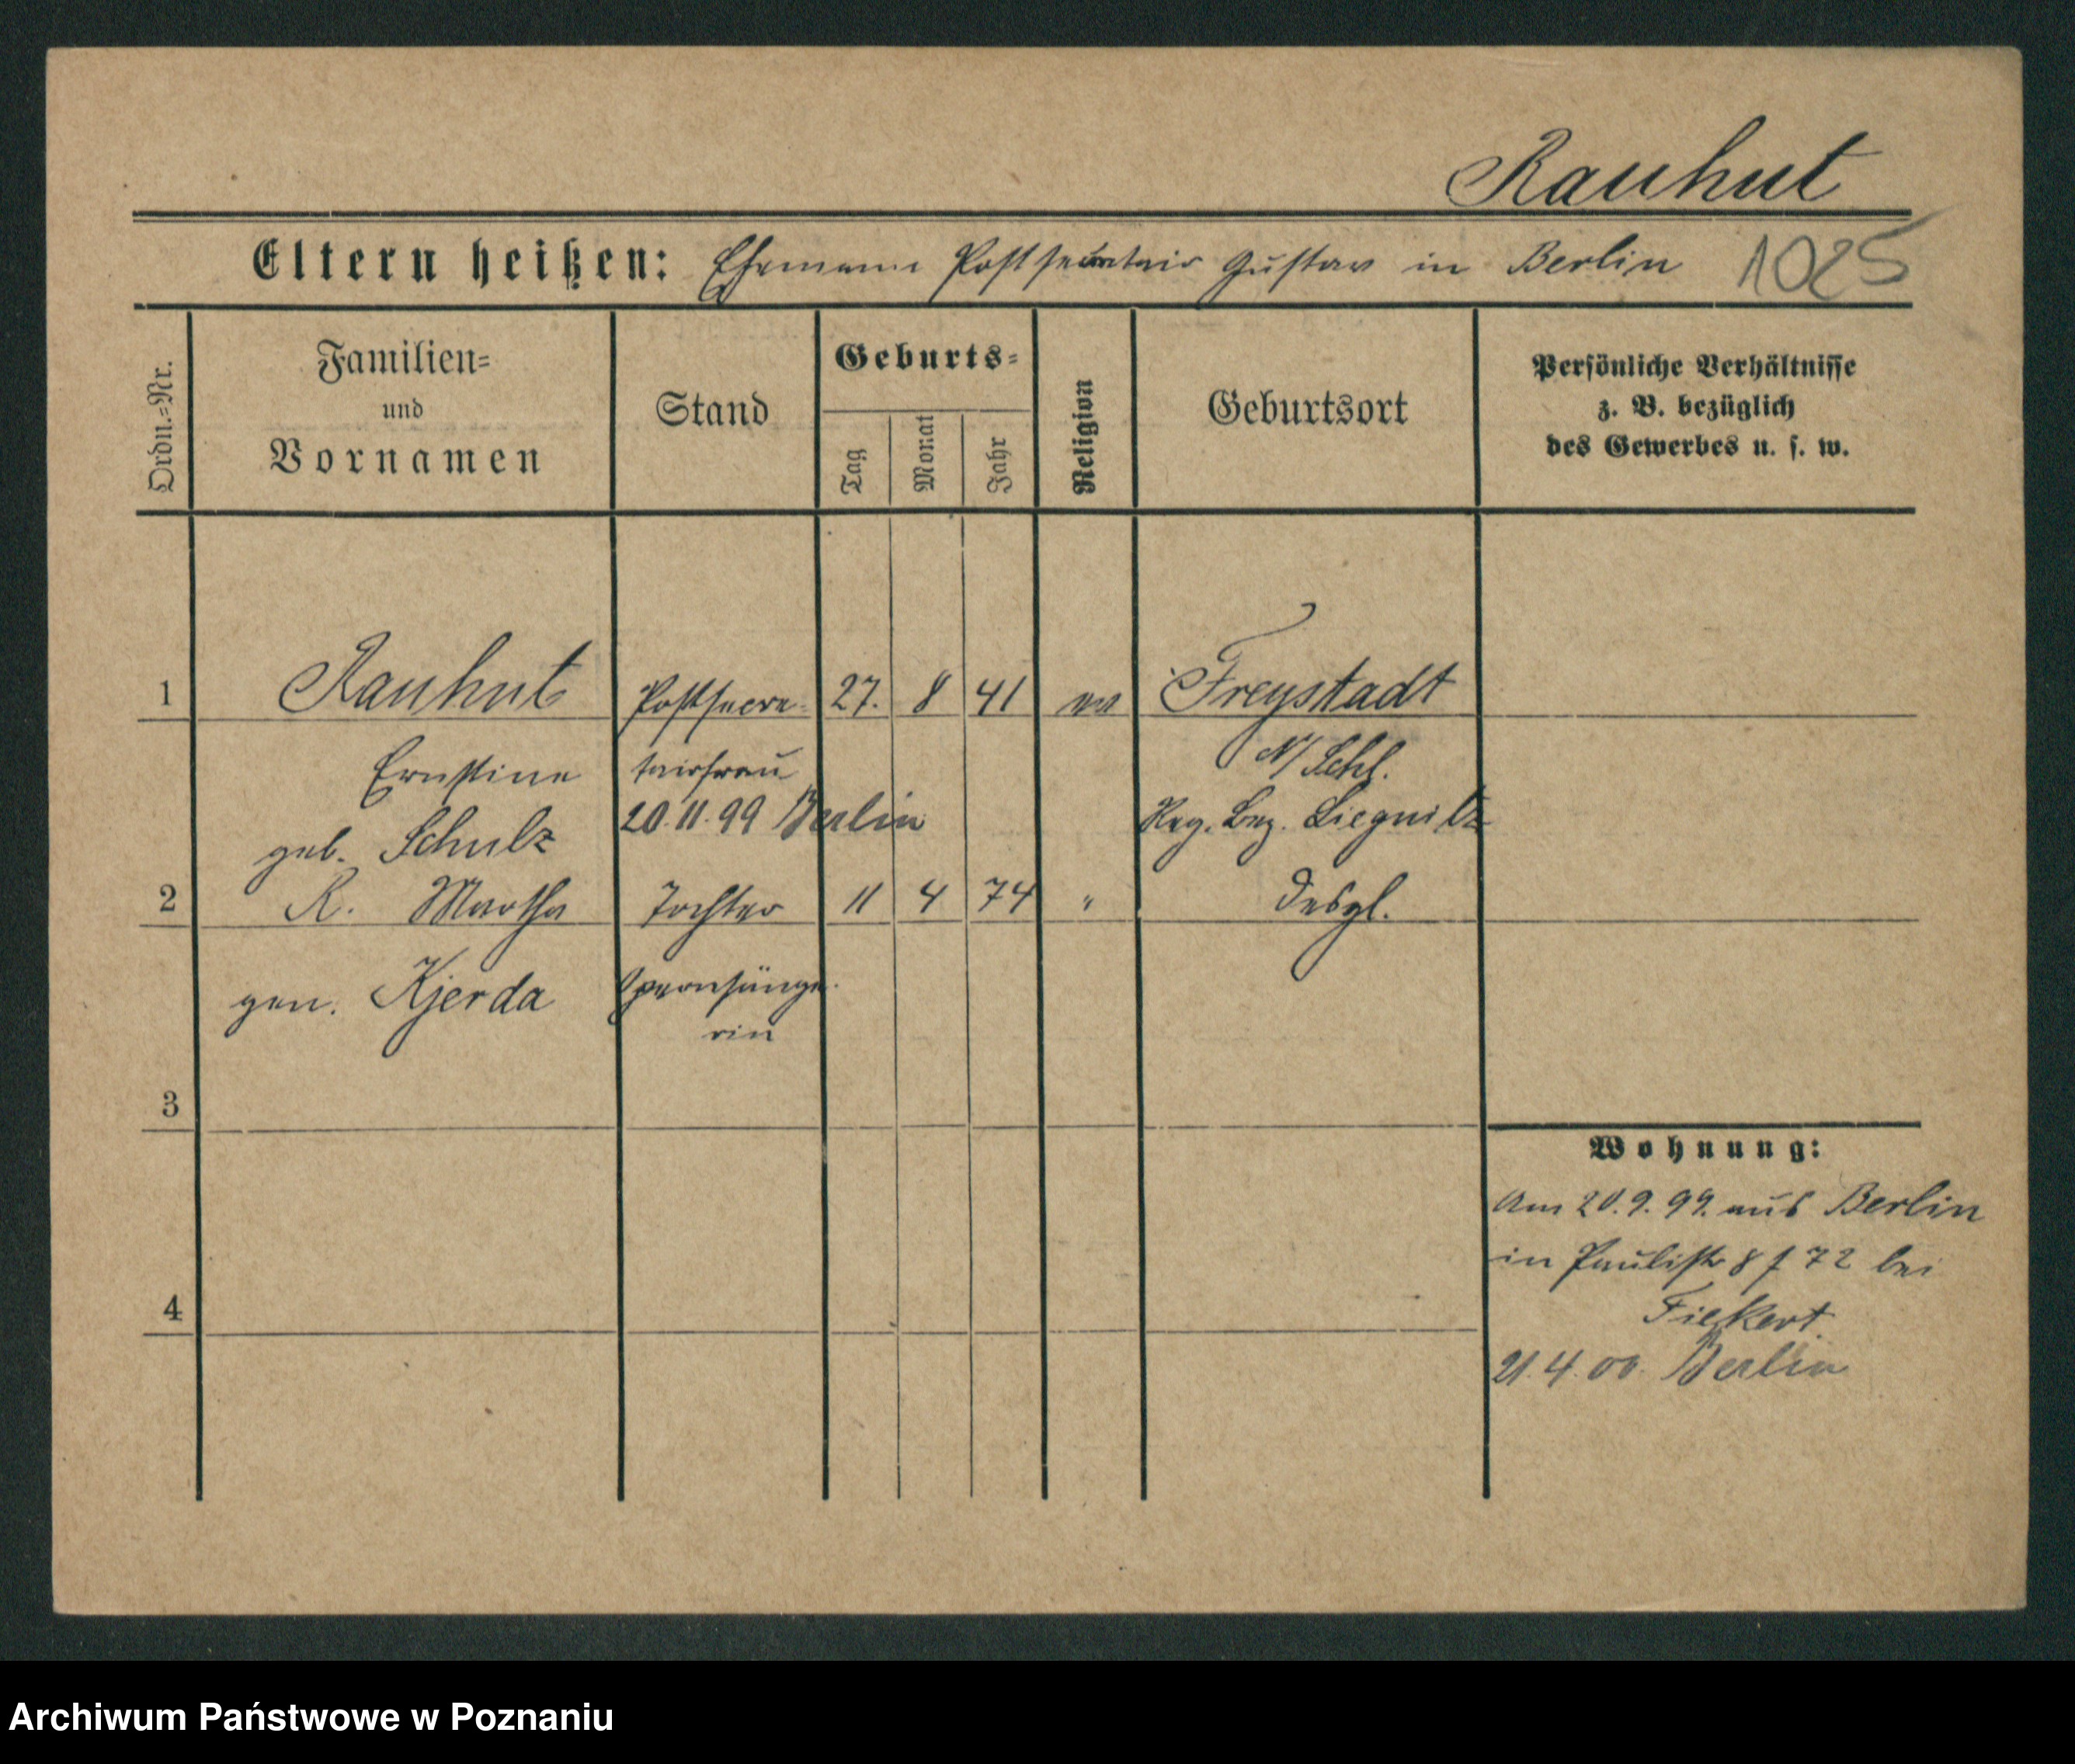 Rauhut
Eltern heißen: Ehemann Postsecretair Gustav in Berlin 1025
Ordn.=Nr.
Familien=
und
Vornamen
Stand
Geburts=
Tag
Monat
Jahr
Religion
Geburtsort
Persönliche Verhältnisse
z. B. bezüglich
des Gewerbes u. s. w.
1 Rauhut Postsecre- 27. 8 41 ev Freystadt
Ernstine tairfrau N/Schl.
geb. Schulz 20.11.99 Berlin Reg. Bez. Liegnitz
2 R. Martha Tochter 11 4 74 " desgl.
gen. Kjerda Opernsänge-
rin
3
4
Wohnung:
Am 20.9.99. aus Berlin
in Paulistr 8 f 72 bei
Fiekert
21.4.00. Berlin
Archiwum Państwowe w Poznaniu